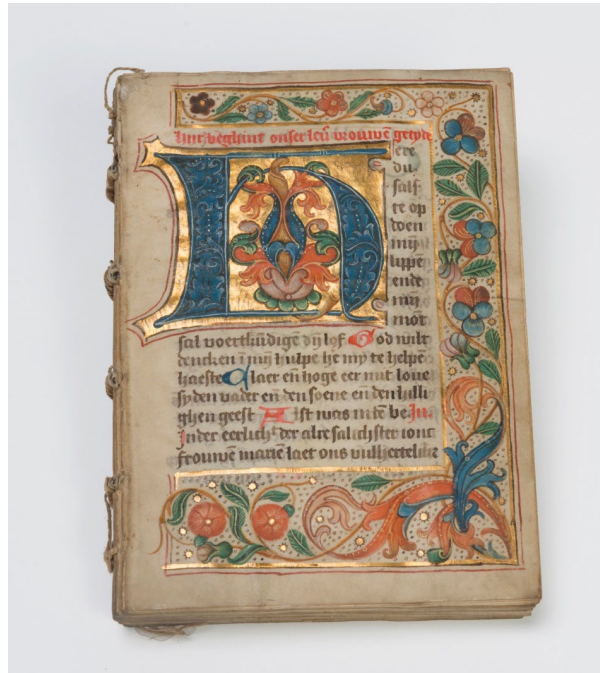 Hier beghint onser leū vrouwē getyde
Here
du
salt
te op
doen
mijn
lippē
ende
mijn
mōt
sal voertkūdigē dij lof God wilt
dencken ī mij hulpe he my te helpē
haeste Glaer eñ hoge eer mit loue
sy den vader eñ den soene eñ den hilli
ghen geest Alst was intē be. In
Inder eerlichꝭ der alresalichster ionc
frouwen marien laet ons vulhertelike